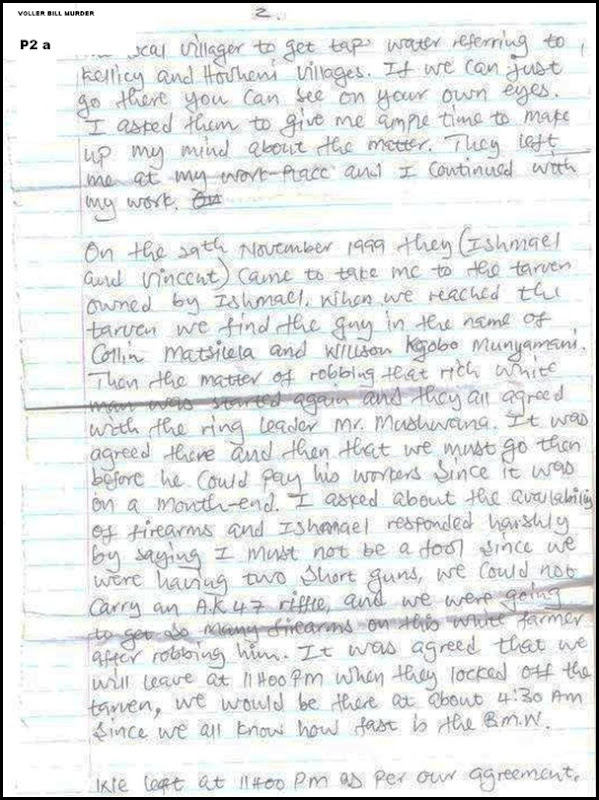 VOLLER BILL MURDER
2.
P2 a
local villager to get tap water referring to
Kellicy and Hovheni villages. If we can just
go there you can see on your own eyes.
I asked them to give me ample time to make
up my mind about the matter. They left
me at my work-place and I continued with
my work.
On the 29th November 1999 they (Ishmael
and Vincent) came to take me to the tarven
owned by Ishmael. When we reached the
tarven we find the guy in the name of
Collin Matsilela and Willson Kgobo Munyamani.
Then the matter of robbing that rich white
man was started again and they all agreed
with the ring leader Mr. Mushwana. It was
agreed there and then that we must go then
before he could pay his workers since it was
on a month-end. I asked about the availability
of firearms and Ishmael responded harshly
by saying I must not be a fool since we
were having two short guns, we could not
carry an A.K 47 riffle, and we were going
to get so many firearms on this white farmer
after robbing him. It was agreed that we
will leave at 11H00 PM when they locked off the
tarven, we would be there at about 4:30 AM
since we all know how fast is the B.M.W.
We left at 11H00 PM as per our agreement.